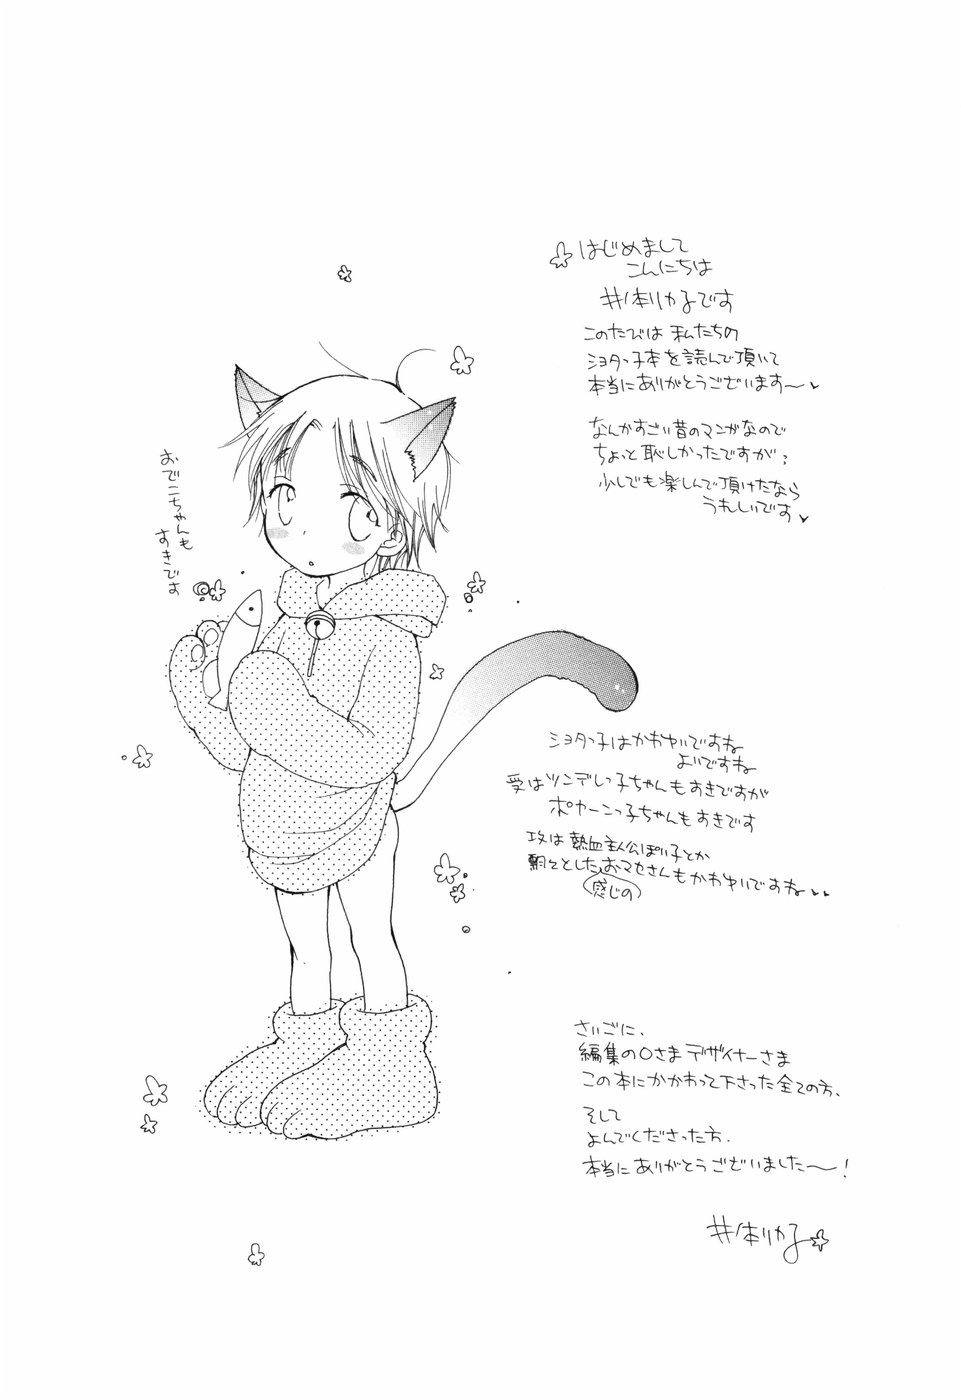 はじめまして
こんにちは
井ノ本リカ子です
このたびは 私たちの
ショタっ子本を読んで頂いて
本当にありがとうございます〜♥
なんかすごい昔のマンガなので
ちょっと恥しかったですが、
少しでも楽しんで頂けたなら
うれしいです♥
おでこちゃんも
すきです
ショタっ子はかわゆいですね
よいですね
受はツンデレっ子ちゃんもすきですが
ポカーンっ子ちゃんもすきです
攻は熱血主人公ぽい子とか
飄々としたおマセさんもかわゆいですね♥♥
感じの
さいごに、
編集のOさまデザイナーさま
この本にかかわって下さった全ての方、
そして
よんでくださった方、
本当にありがとうございました〜!
井ノ本リカ子